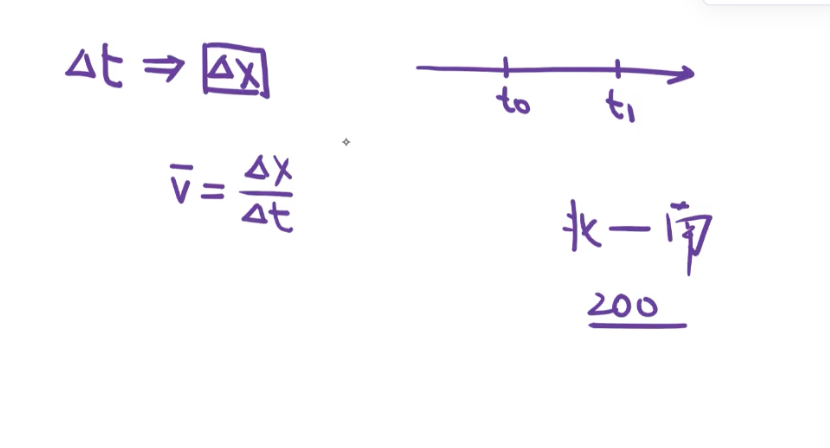 Δt ⇒ Δx
t₀ t₁
v̄ = Δx/Δt
北 —
200